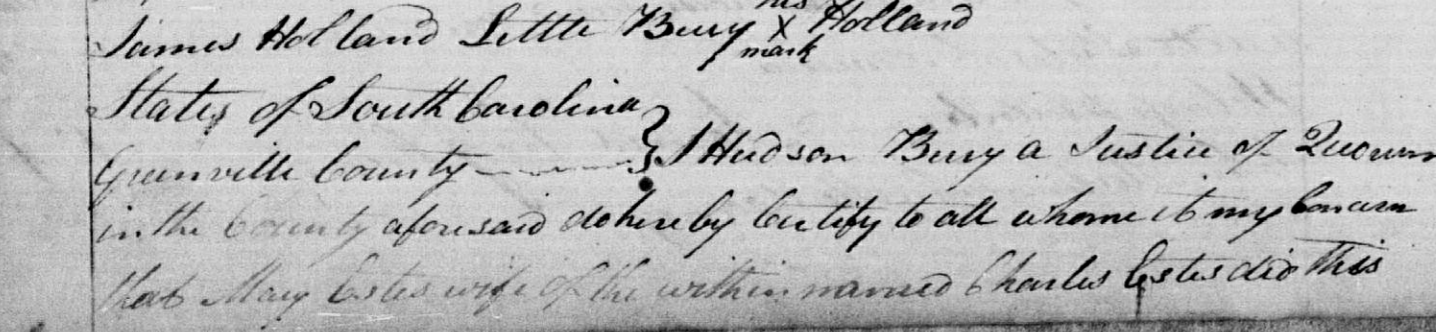 his
James Holland Little Bery X Holland
mark
States of South Carolina
Greenville County } I Hudson Berry a Justice of Quorum
in the County aforesaid do hereby Certify to all whome it my Concern
that Mary Estes wife of the within named Charles Estes did this